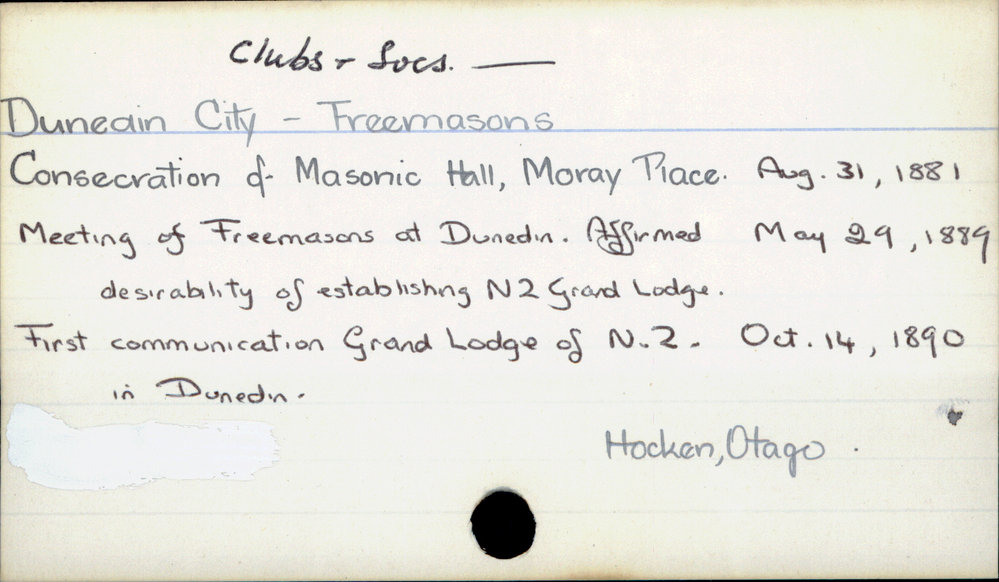 Clubs + Socs. —
Dunedin City - Freemasons
Consecration of Masonic Hall, Moray Place. Aug. 31, 1881
Meeting of Freemasons at Dunedin. Affirmed May 29, 1889
desirability of establishing NZ Grand Lodge.
First communication Grand Lodge of N.Z. Oct. 14, 1890
in Dunedin.
Hocken, Otago